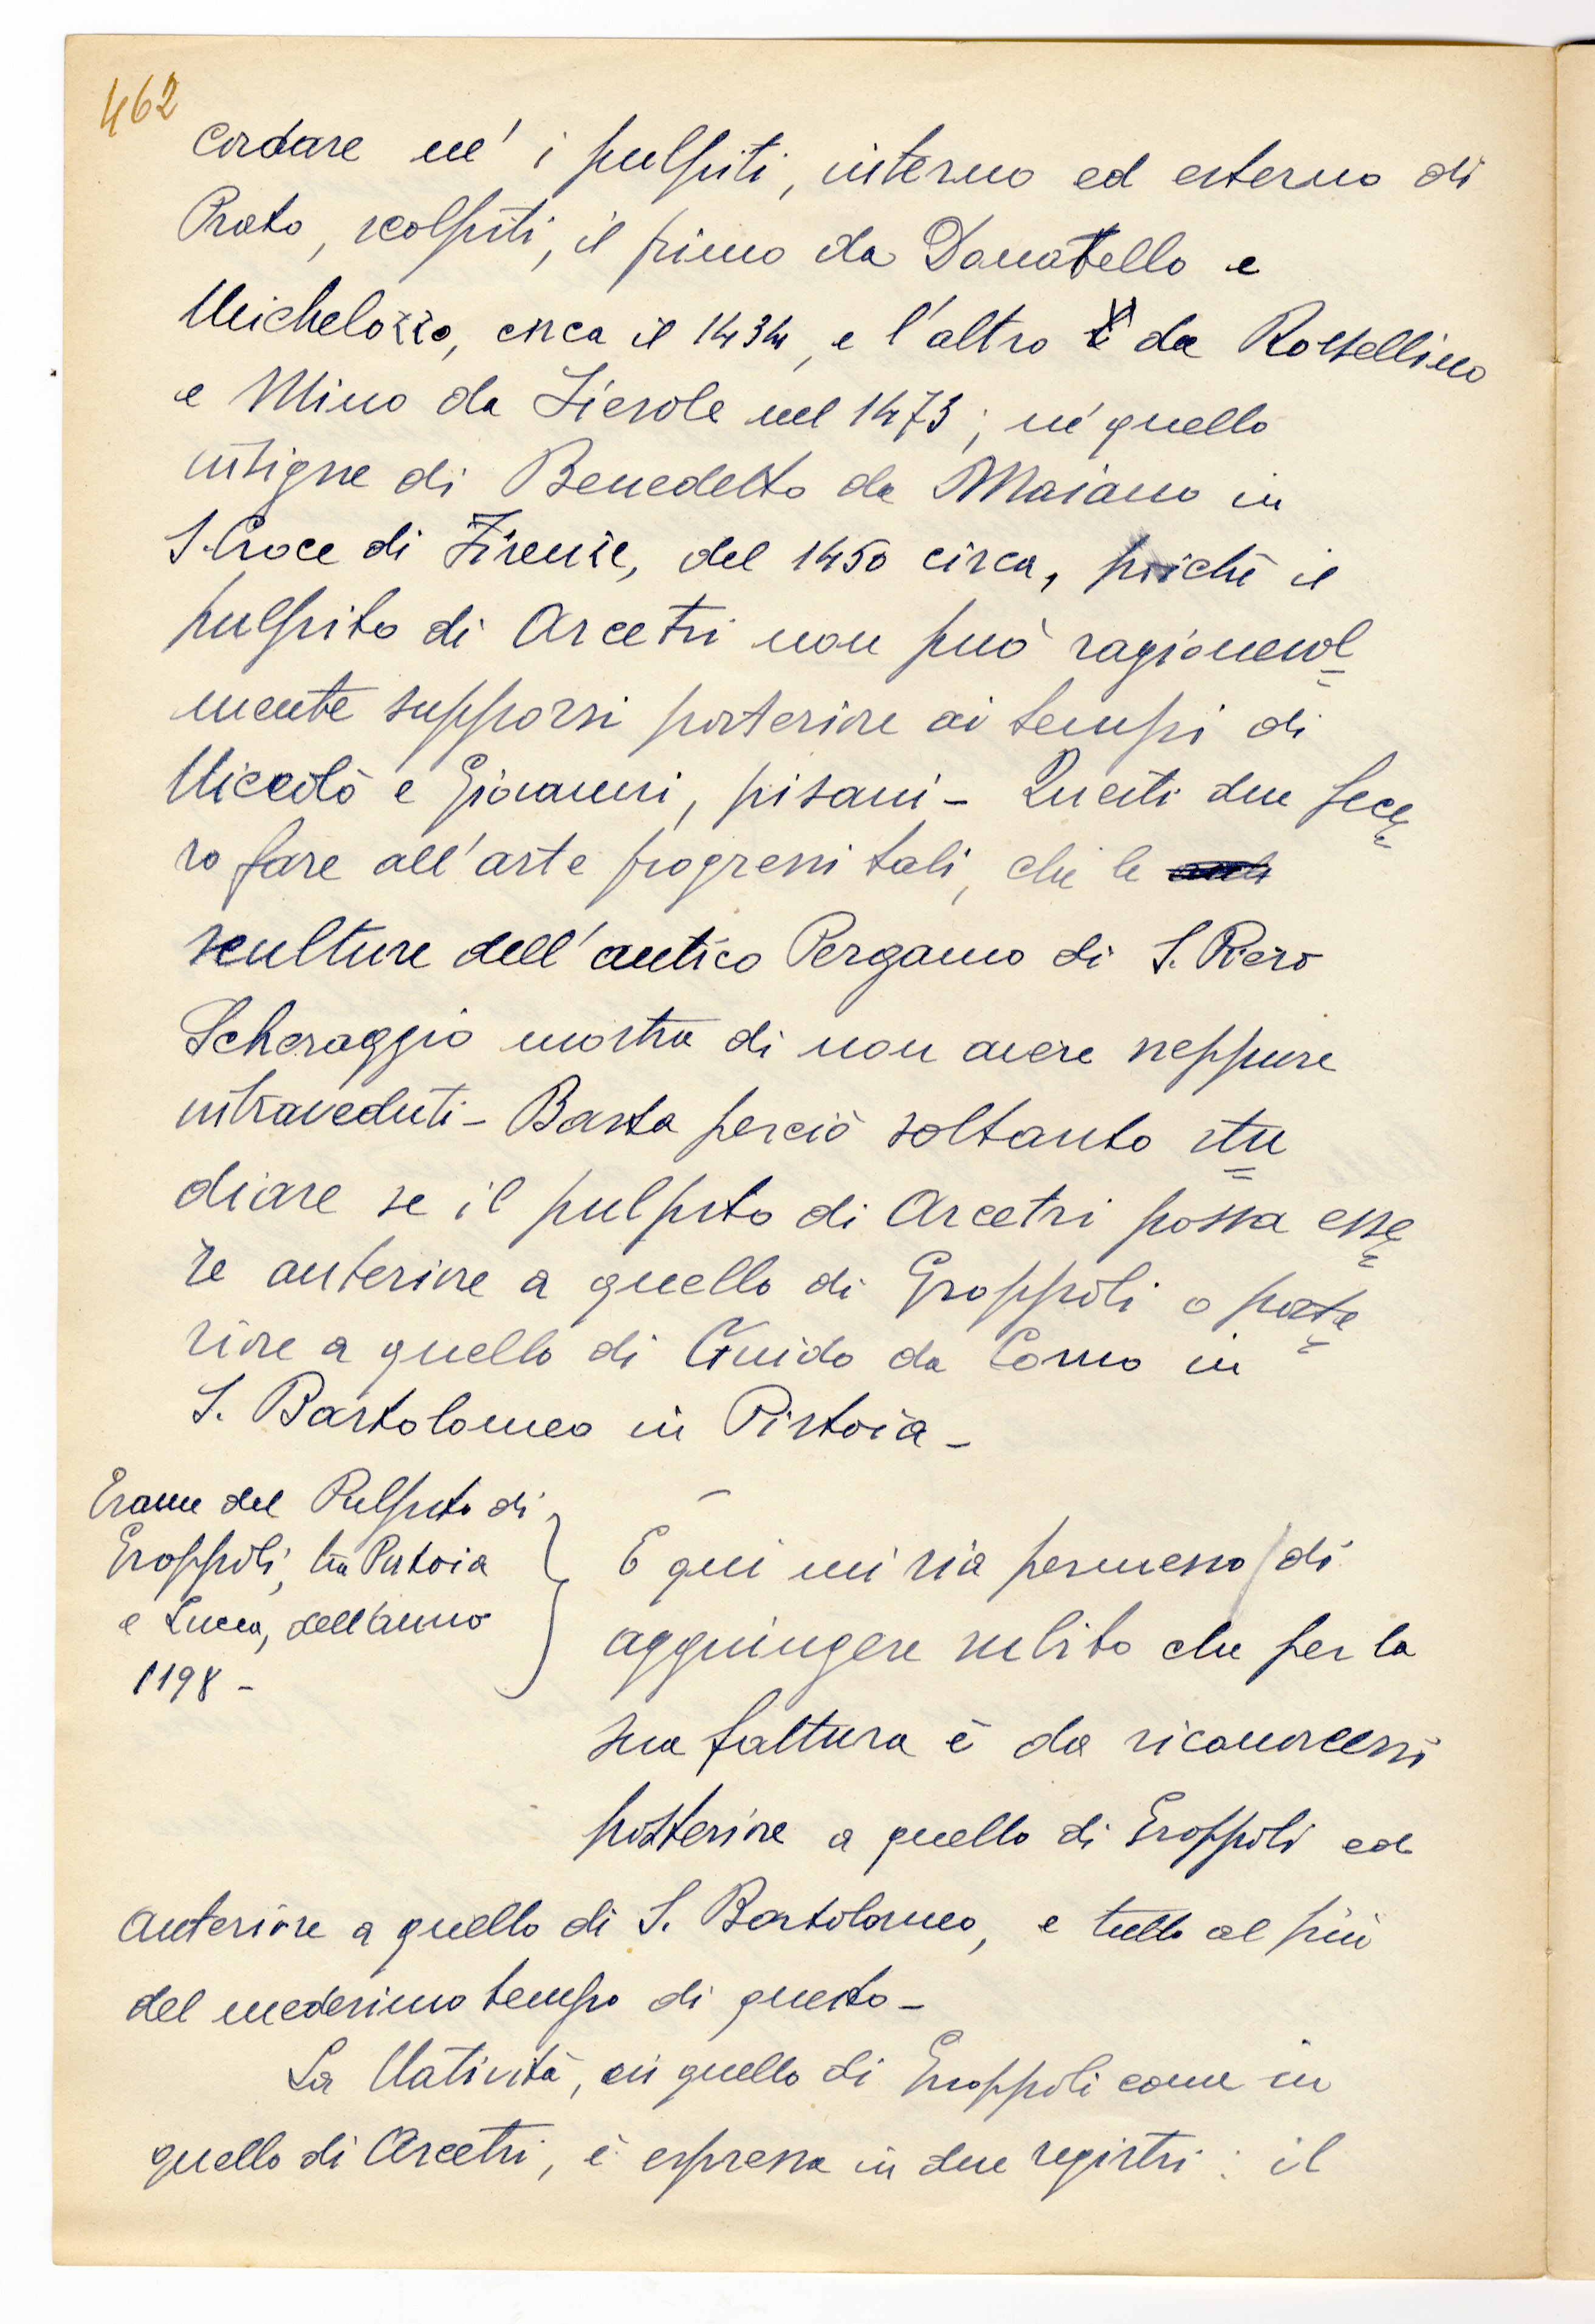 462
cordare nè i pulpiti, interno ed esterno di
Prato, scolpiti, il primo da Donatello e
Michelozzo, circa il 1434, e l'altro da Rossellino
e Mino da Fiesole nel 1473; nè quello
insigne di Benedetto da Maiano in
S. Croce di Firenze, del 1450 circa, poichè il
pulpito di Arcetri non può ragionevol=
mente supporsi posteriore ai tempi di
Niccolò e Giovanni, pisani - Questi due fece=
ro fare all'arte progressi tali, che le
sculture dell'antico Pergamo di S. Piero
Scheraggio mostra di non avere neppure
intraveduti - Basta perciò soltanto stu=
diare se il pulpito di Arcetri possa esse=
re anteriore a quello di Groppoli o poste=
riore a quello di Guido da Como in
S. Bartolomeo in Pistoia -
Esame del Pulpito di
Groppoli, tra Pistoia
e Lucca, dell'anno
1198 -
E qui mi sia permesso di
aggiungere subito che per la
sua fattura è da riconoscersi
posteriore a quello di Groppoli ed
anteriore a quello di S. Bartolomeo, e tutto al più
del medesimo tempo di questo -
La Natività, in quello di Groppoli come in
quello di Arcetri, è espressa in due registri: il